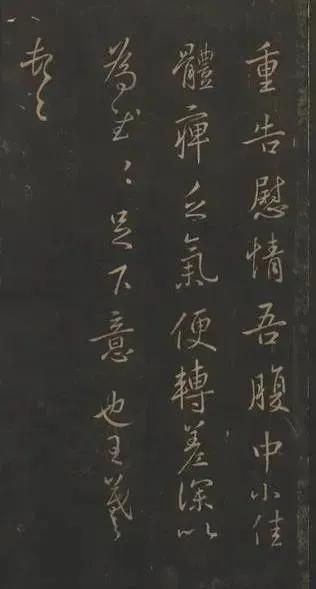 重告慰情吾腹中小佳
體痺乏氣便轉差深以
為足下意也王羲